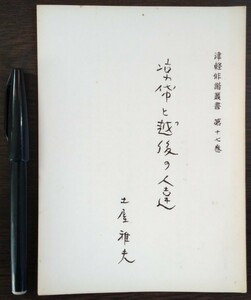 津軽俳諧叢書 第十七巻
凉帒と越後の人達
土屋雅夫